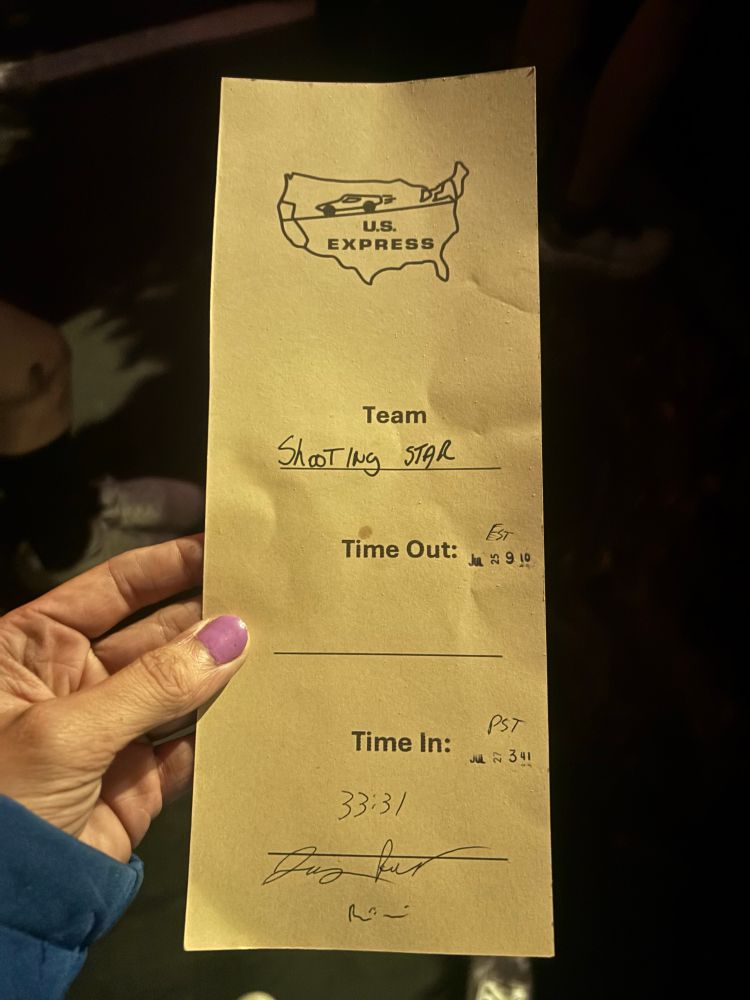 U.S.
EXPRESS
Team
Shooting STAR
EST
Time Out: JUL 25 9 10
PST
Time In: JUL 27 3 41
33:31